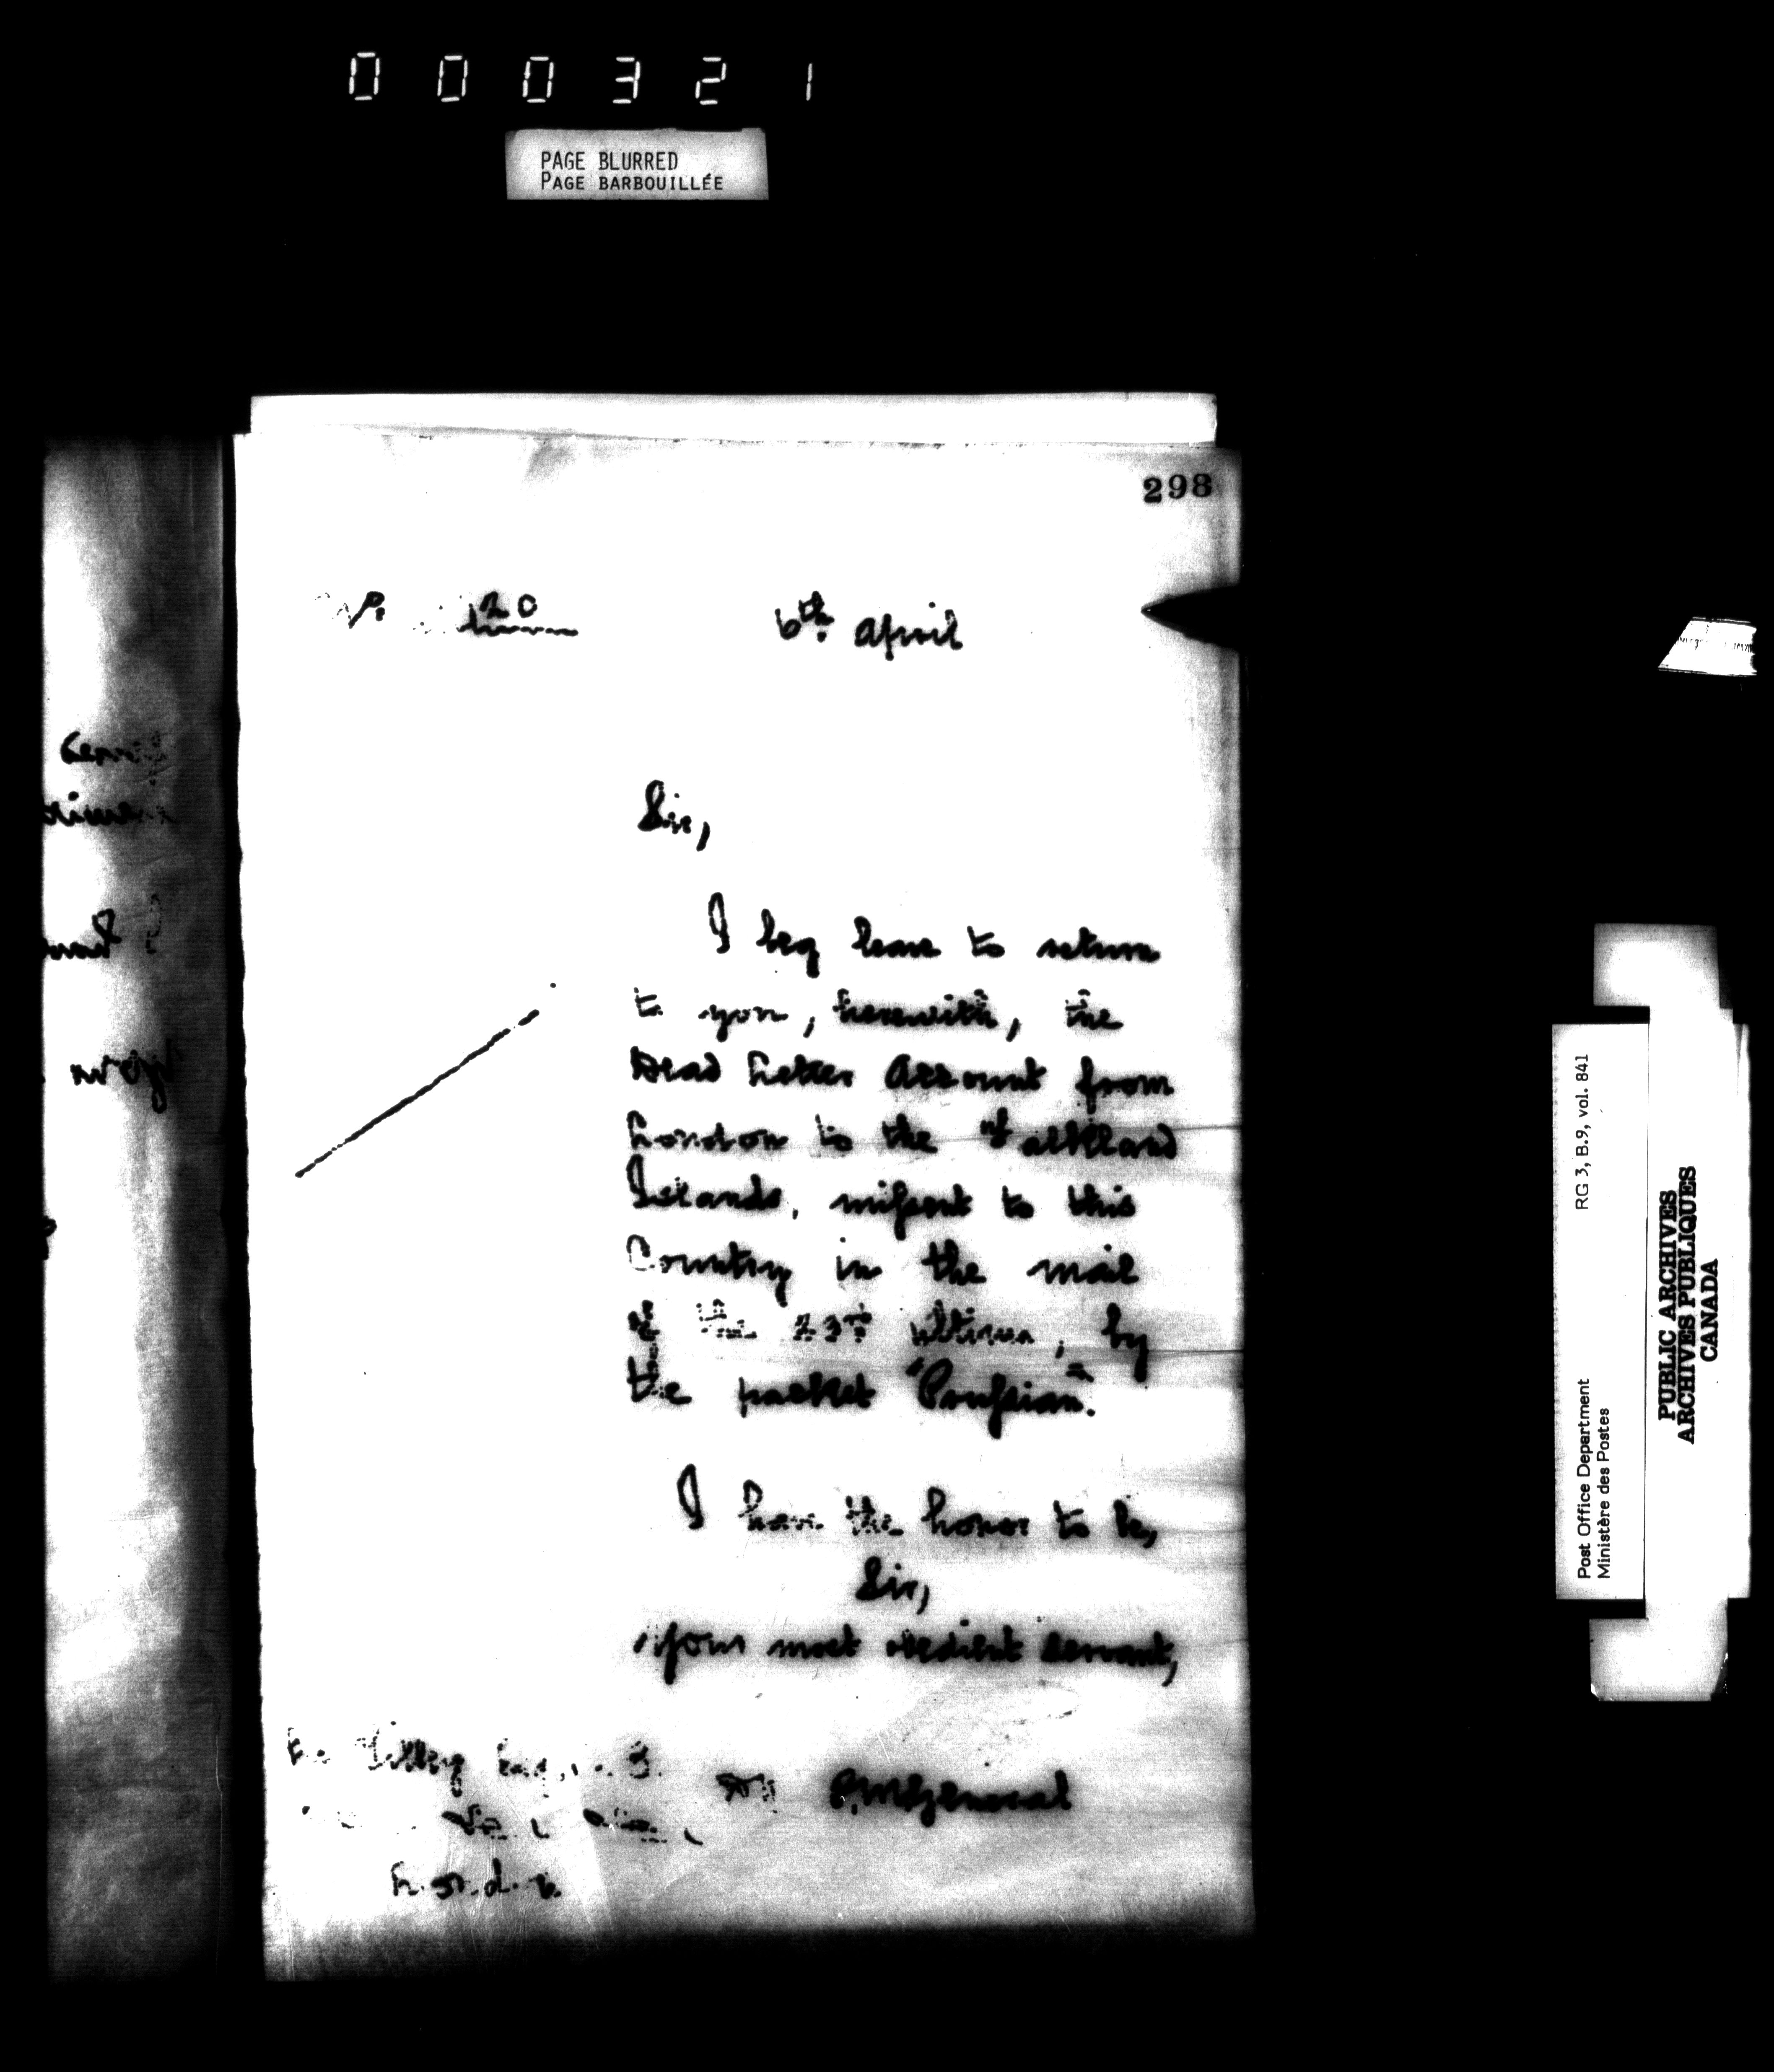 000321
PAGE BLURRED
PAGE BARBOUILLÉE
298
20
6th. April
Sir,
I beg leave to return
to you, herewith, the
Dead Letter Account from
London to the Falkland
Islands, missent to this
Country in the mail
of the 23rd ultimo, by
the packet "Prussian".
I have the honor to be,
Sir,
Your most obedient servant,
PMGeneral
Tilley
RG 3, B.9, vol. 841
Post Office Department
Ministère des Postes
PUBLIC ARCHIVES
ARCHIVES PUBLIQUES
CANADA